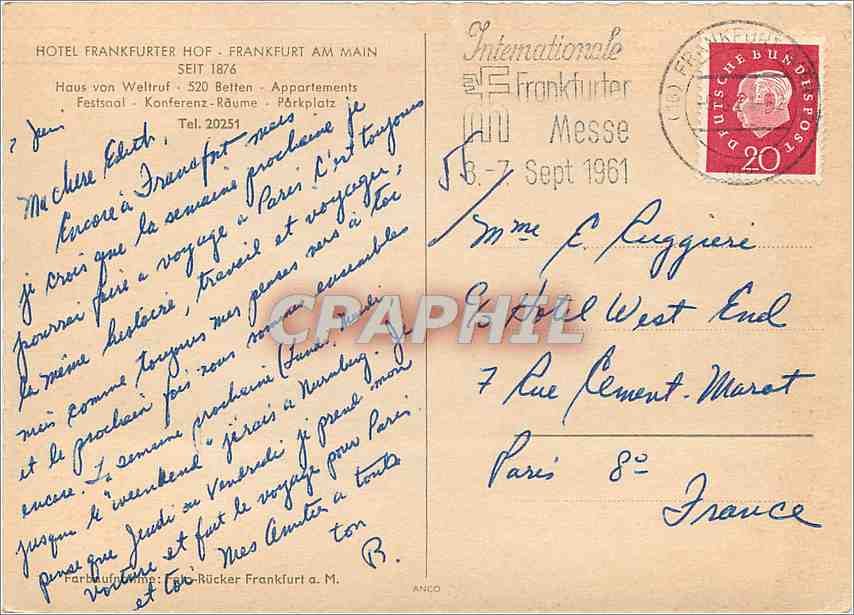 HOTEL FRANKFURTER HOF - FRANKFURT AM MAIN
SEIT 1876
Haus von Weltruf · 520 Betten · Appartements
Festsaal · Konferenz-Räume · Parkplatz
Tel. 20251
Juin
Ma chere Edith,
Encore à Francfort mais
je crois que la semaine prochaine je
pourrai faire a voyage a Paris. C'est toujours
la même histoire, travail et voyager,
mais comme toujours mes penses vers à toi
et le prochain fois nous somme ensembles
encore. La semaine prochaine (Lundi, Mardi
jusque le "weenkend" j'érais a Nurnberg. Je
pense que Jeudi ou Vendredi je prend mon
voiture et fait le voyage pour Paris
et toi. Mes Amitie a toute
ton
R.
Farbaufnahme: Foto-Rücker Frankfurt a. M.
ANCO
Internationale
Frankfurter
Messe
3.-7. Sept 1961
(16) FRANKFURT
DEUTSCHE BUNDESPOST
20
Mme E. Ruggieri
c/o Hotel West End
7 Rue Clement-Marot
Paris 8°
France
CPAPHIL